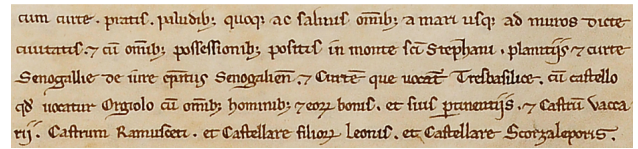 cum curte. pratis. paludib; quoq; ac salinis om̄ib; a mari usq; ad muros dicte
ciuitatis. ⁊ cū om̄ib; possessionib; positis in monte sc̄i Stephani. planitiis ⁊ curte
Senogallie de iure Senogalień. ⁊ Curtem que uocat̄ Tresbasilice. cū castello
qd̄ uocatur Orgiolo cū om̄ib; hominib; ⁊ eoꝝ bonis. et suis ꝑtinentiis. ⁊ Castrū Vacca
rii. Castrum Ramusceti. et Castellare filioꝝ Leonis. et Castellare Scorzaleporis.